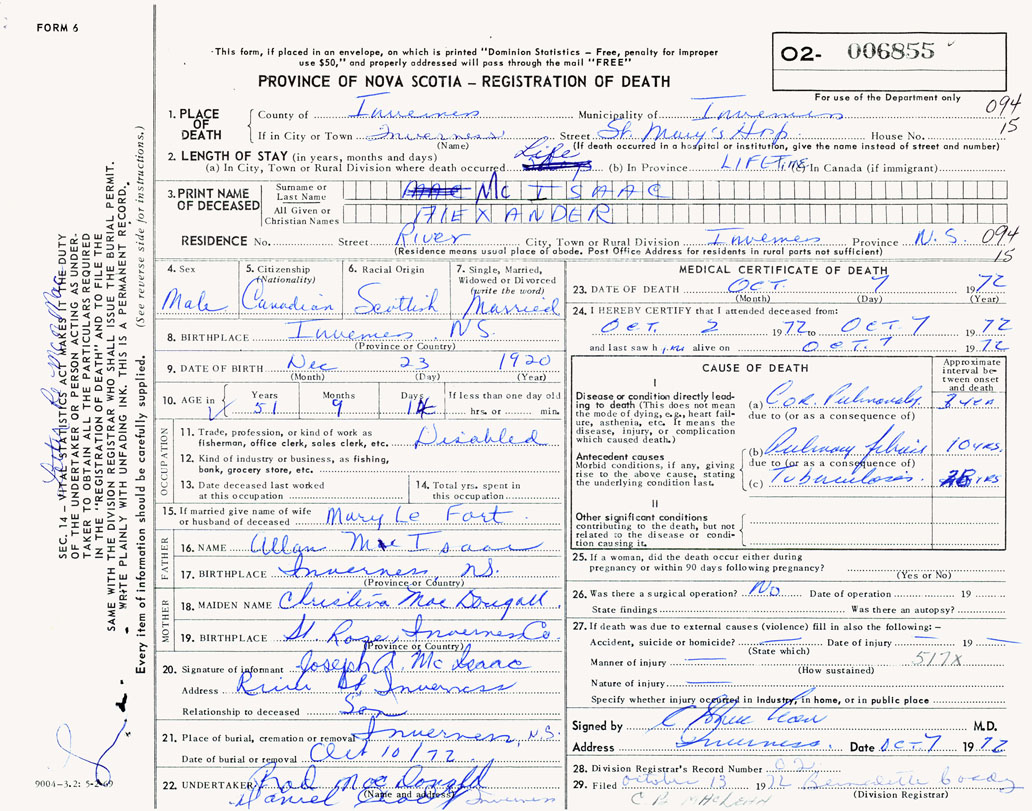 FORM 6
-This form, if placed in an envelope, on which is printed "Dominion Statistics – Free, penalty for improper
use $50," and properly addressed will pass through the mail "FREE"
PROVINCE OF NOVA SCOTIA – REGISTRATION OF DEATH
O2- 006855
For use of the Department only
094
15
1. PLACE OF DEATH
County of Inverness Municipality of Inverness
If in City or Town Inverness Street St. Mary's Hosp. House No.
(Name) (If death occurred in a hospital or institution, give the name instead of street and number)
2. LENGTH OF STAY (in years, months and days) Life
(a) In City, Town or Rural Division where death occurred (b) In Province LIFETIME (c) In Canada (if immigrant)
3. PRINT NAME OF DECEASED
Surname or Last Name Mc ISAAC
All Given or Christian Names ALEXANDER
RESIDENCE No. Street River City, Town or Rural Division Inverness Province N.S. 094
(Residence means usual place of abode. Post Office Address for residents in rural parts not sufficient) 15
4. Sex Male
5. Citizenship (Nationality) Canadian
6. Racial Origin Scottish
7. Single, Married, Widowed or Divorced (write the word) Married
8. BIRTHPLACE Inverness, N.S.
(Province or Country)
9. DATE OF BIRTH Dec 23 1920
(Month) (Day) (Year)
10. AGE in Years 51 Months 9 Days 14 If less than one day old hrs. or min.
OCCUPATION
11. Trade, profession, or kind of work as fisherman, office clerk, sales clerk, etc. Disabled
12. Kind of industry or business, as fishing, bank, grocery store, etc.
13. Date deceased last worked at this occupation
14. Total yrs. spent in this occupation
15. If married give name of wife or husband of deceased Mary Le Fort
FATHER
16. NAME Allan Mac Isaac
17. BIRTHPLACE Inverness, N.S.
(Province or Country)
MOTHER
18. MAIDEN NAME Christina Mac Dougall
19. BIRTHPLACE St. Rose, Inverness Co
(Province or Country)
20. Signature of informant Joseph A. Mc Isaac
Address River St Inverness
Relationship to deceased Son
21. Place of burial, cremation or removal Inverness, N.S.
Date of burial or removal Oct 10/72
22. UNDERTAKER Rod Mac Donald
(Name and address) Daniel Inverness
MEDICAL CERTIFICATE OF DEATH
23. DATE OF DEATH OCT. 7 1972
(Month) (Day) (Year)
24. I HEREBY CERTIFY that I attended deceased from:
OCT. 2 1972 to OCT. 7 1972
and last saw him alive on OCT. 7 1972
CAUSE OF DEATH
Approximate interval between onset and death
I
Disease or condition directly leading to death (This does not mean the mode of dying, e.g., heart failure, asthenia, etc. It means the disease, injury, or complication which caused death.)
(a) Cor Pulmonale
due to (or as a consequence of)
Antecedent causes
Morbid conditions, if any, giving rise to the above cause, stating the underlying condition last.
(b) Pulmonary fibrosis 10 YRS.
due to (or as a consequence of)
(c) Tuberculosis YRS
II
Other significant conditions contributing to the death, but not related to the disease or condition causing it.
25. If a woman, did the death occur either during
pregnancy or within 90 days following pregnancy?
(Yes or No)
26. Was there a surgical operation? No Date of operation 19
State findings Was there an autopsy?
27. If death was due to external causes (violence) fill in also the following: –
Accident, suicide or homicide? Date of injury 19
(State which)
Manner of injury 517X
(How sustained)
Nature of injury
Specify whether injury occurred in industry, in home, or in public place
Signed by M.D.
Address Inverness. Date OCT 7 1972
28. Division Registrar's Record Number 92
29. Filed October 13 1972 Bernadette Coady
(Division Registrar)
C B MacLean
SEC. 14 – VITAL STATISTICS ACT MAKES IT THE DUTY
OF THE UNDERTAKER OR PERSON ACTING AS UNDER-
TAKER TO OBTAIN ALL THE PARTICULARS REQUIRED
IN THE "REGISTRATION OF DEATH" AND TO FILE THE
SAME WITH THE DIVISION REGISTRAR WHO SHALL ISSUE THE BURIAL PERMIT.
WRITE PLAINLY WITH UNFADING INK. THIS IS A PERMANENT RECORD.
Every item of information should be carefully supplied. (See reverse side for instructions.)
9004-3.2: 5-2-69